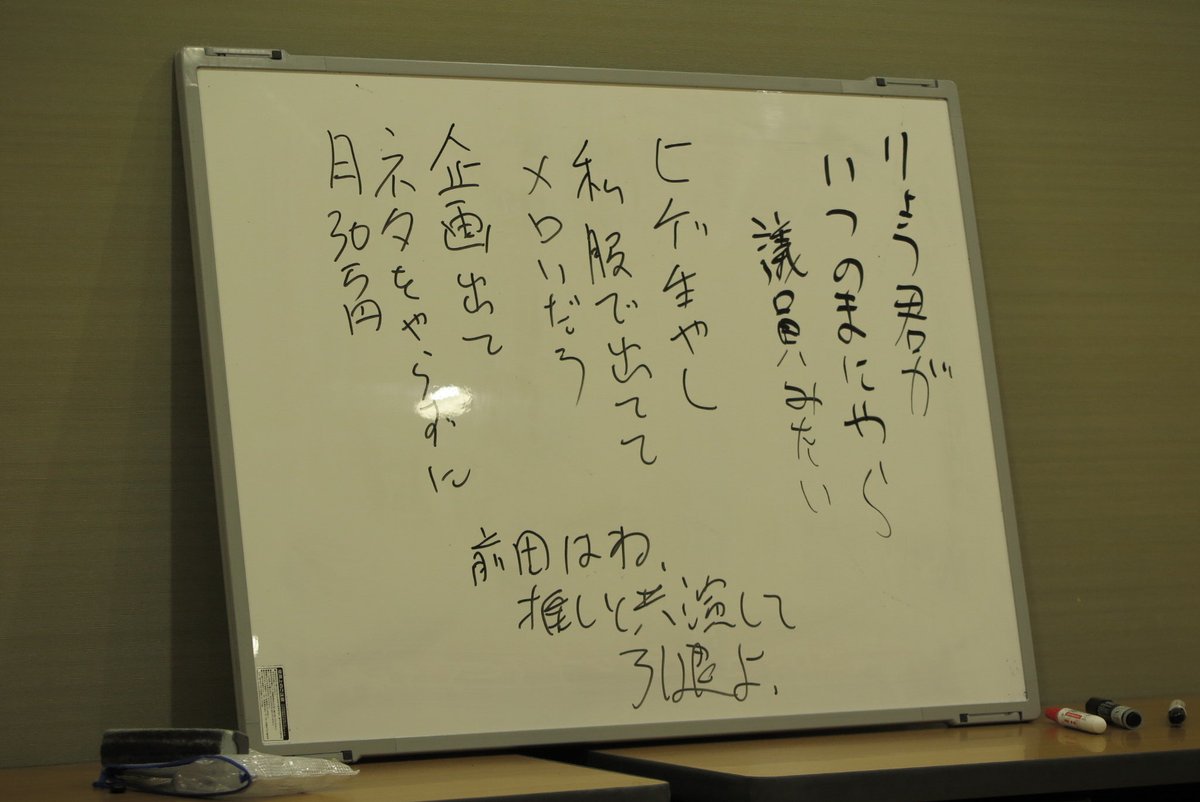 りょう君が
いつのまにやら
議員みたい
ヒゲ生やし
私服で出てて
メロいだろ
企画出て
ネタをやらずに
月30万円
前田はね、
推しと共演して
引退よ、